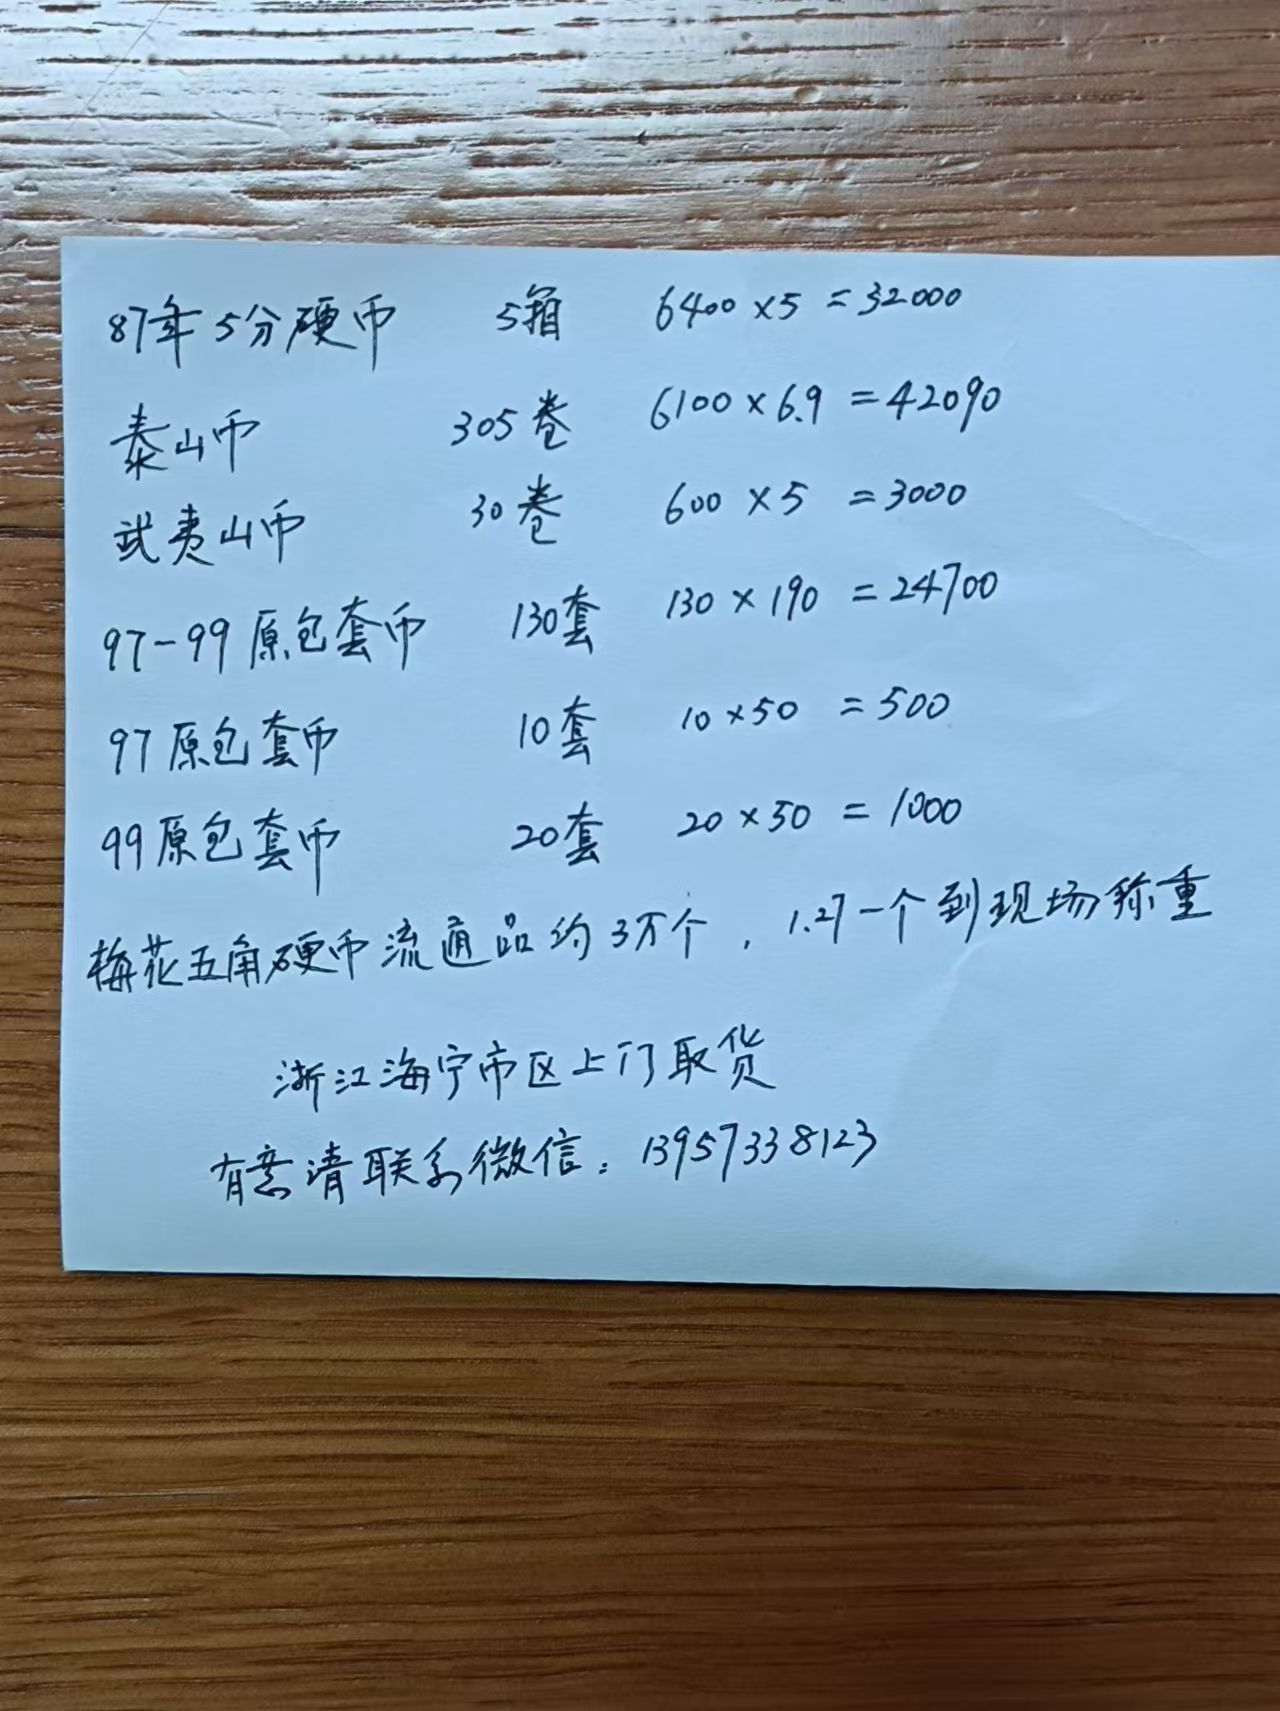 87年5分硬币 5箱 6400×5=32000
泰山币 305卷 6100×6.9=42090
武夷山币 30卷 600×5=3000
97-99原包套币 130套 130×190=24700
97原包套币 10套 10×50=500
99原包套币 20套 20×50=1000
梅花五角硬币流通品约3万个，1.27一个到现场称重
浙江海宁市区上门取货
有意请联系微信：13957338123